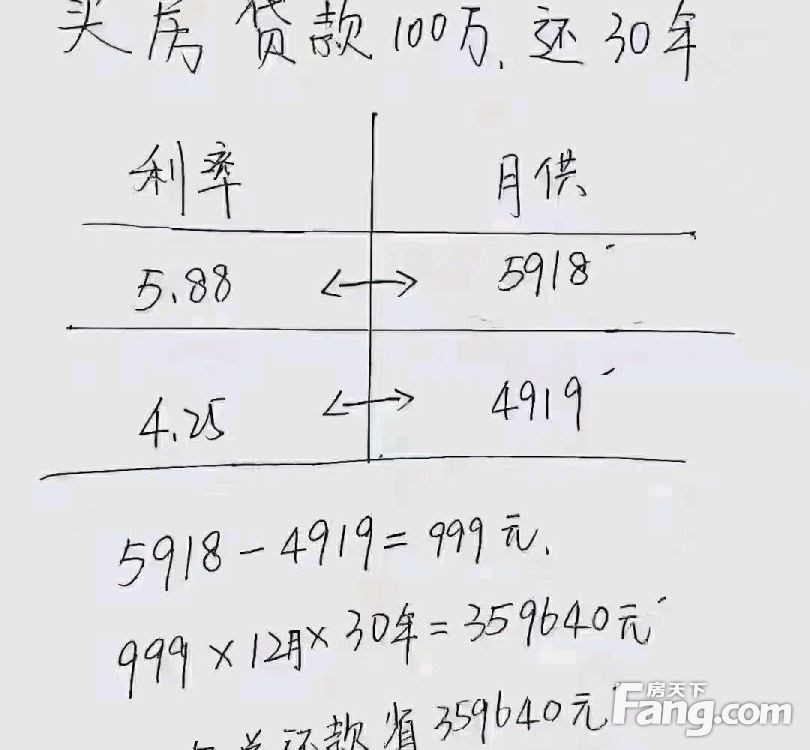 买房贷款100万，还30年
利率 月供
5.88 ↔ 5918
4.25 ↔ 4919
5918-4919=999元.
999×12月×30年=359640元
还款省359640元
房天下
Fang.com